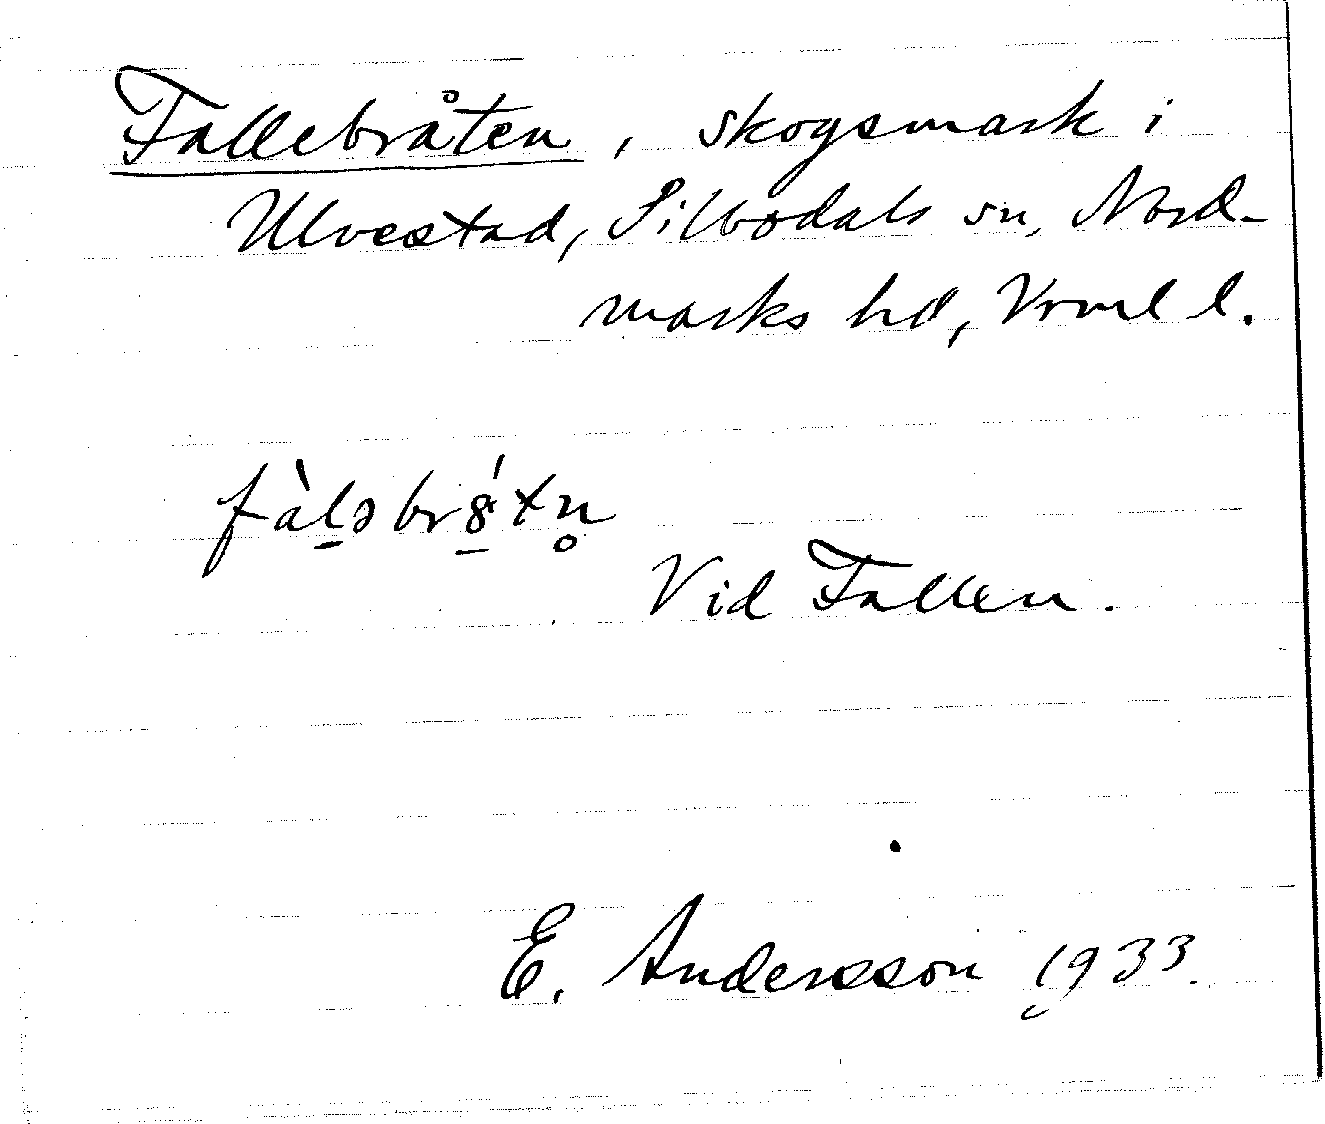 Fallebråten, skogsmark i
Ulvestad, Silbodals sn, Nord-
marks hd, Vrml l.
fàl̠əbr8̠́tn̥
Vid Fallen.
E. Andersson 1933.